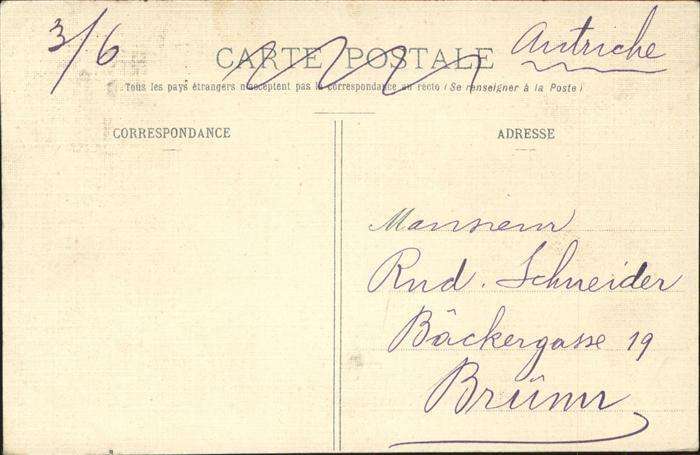 3/6
Autriche
CARTE POSTALE
Tous les pays étrangers n'acceptent pas la correspondance au recto (Se renseigner à la Poste)
CORRESPONDANCE
ADRESSE
Monsieur
Rud. Schneider
Bäckergasse 19
Brünn